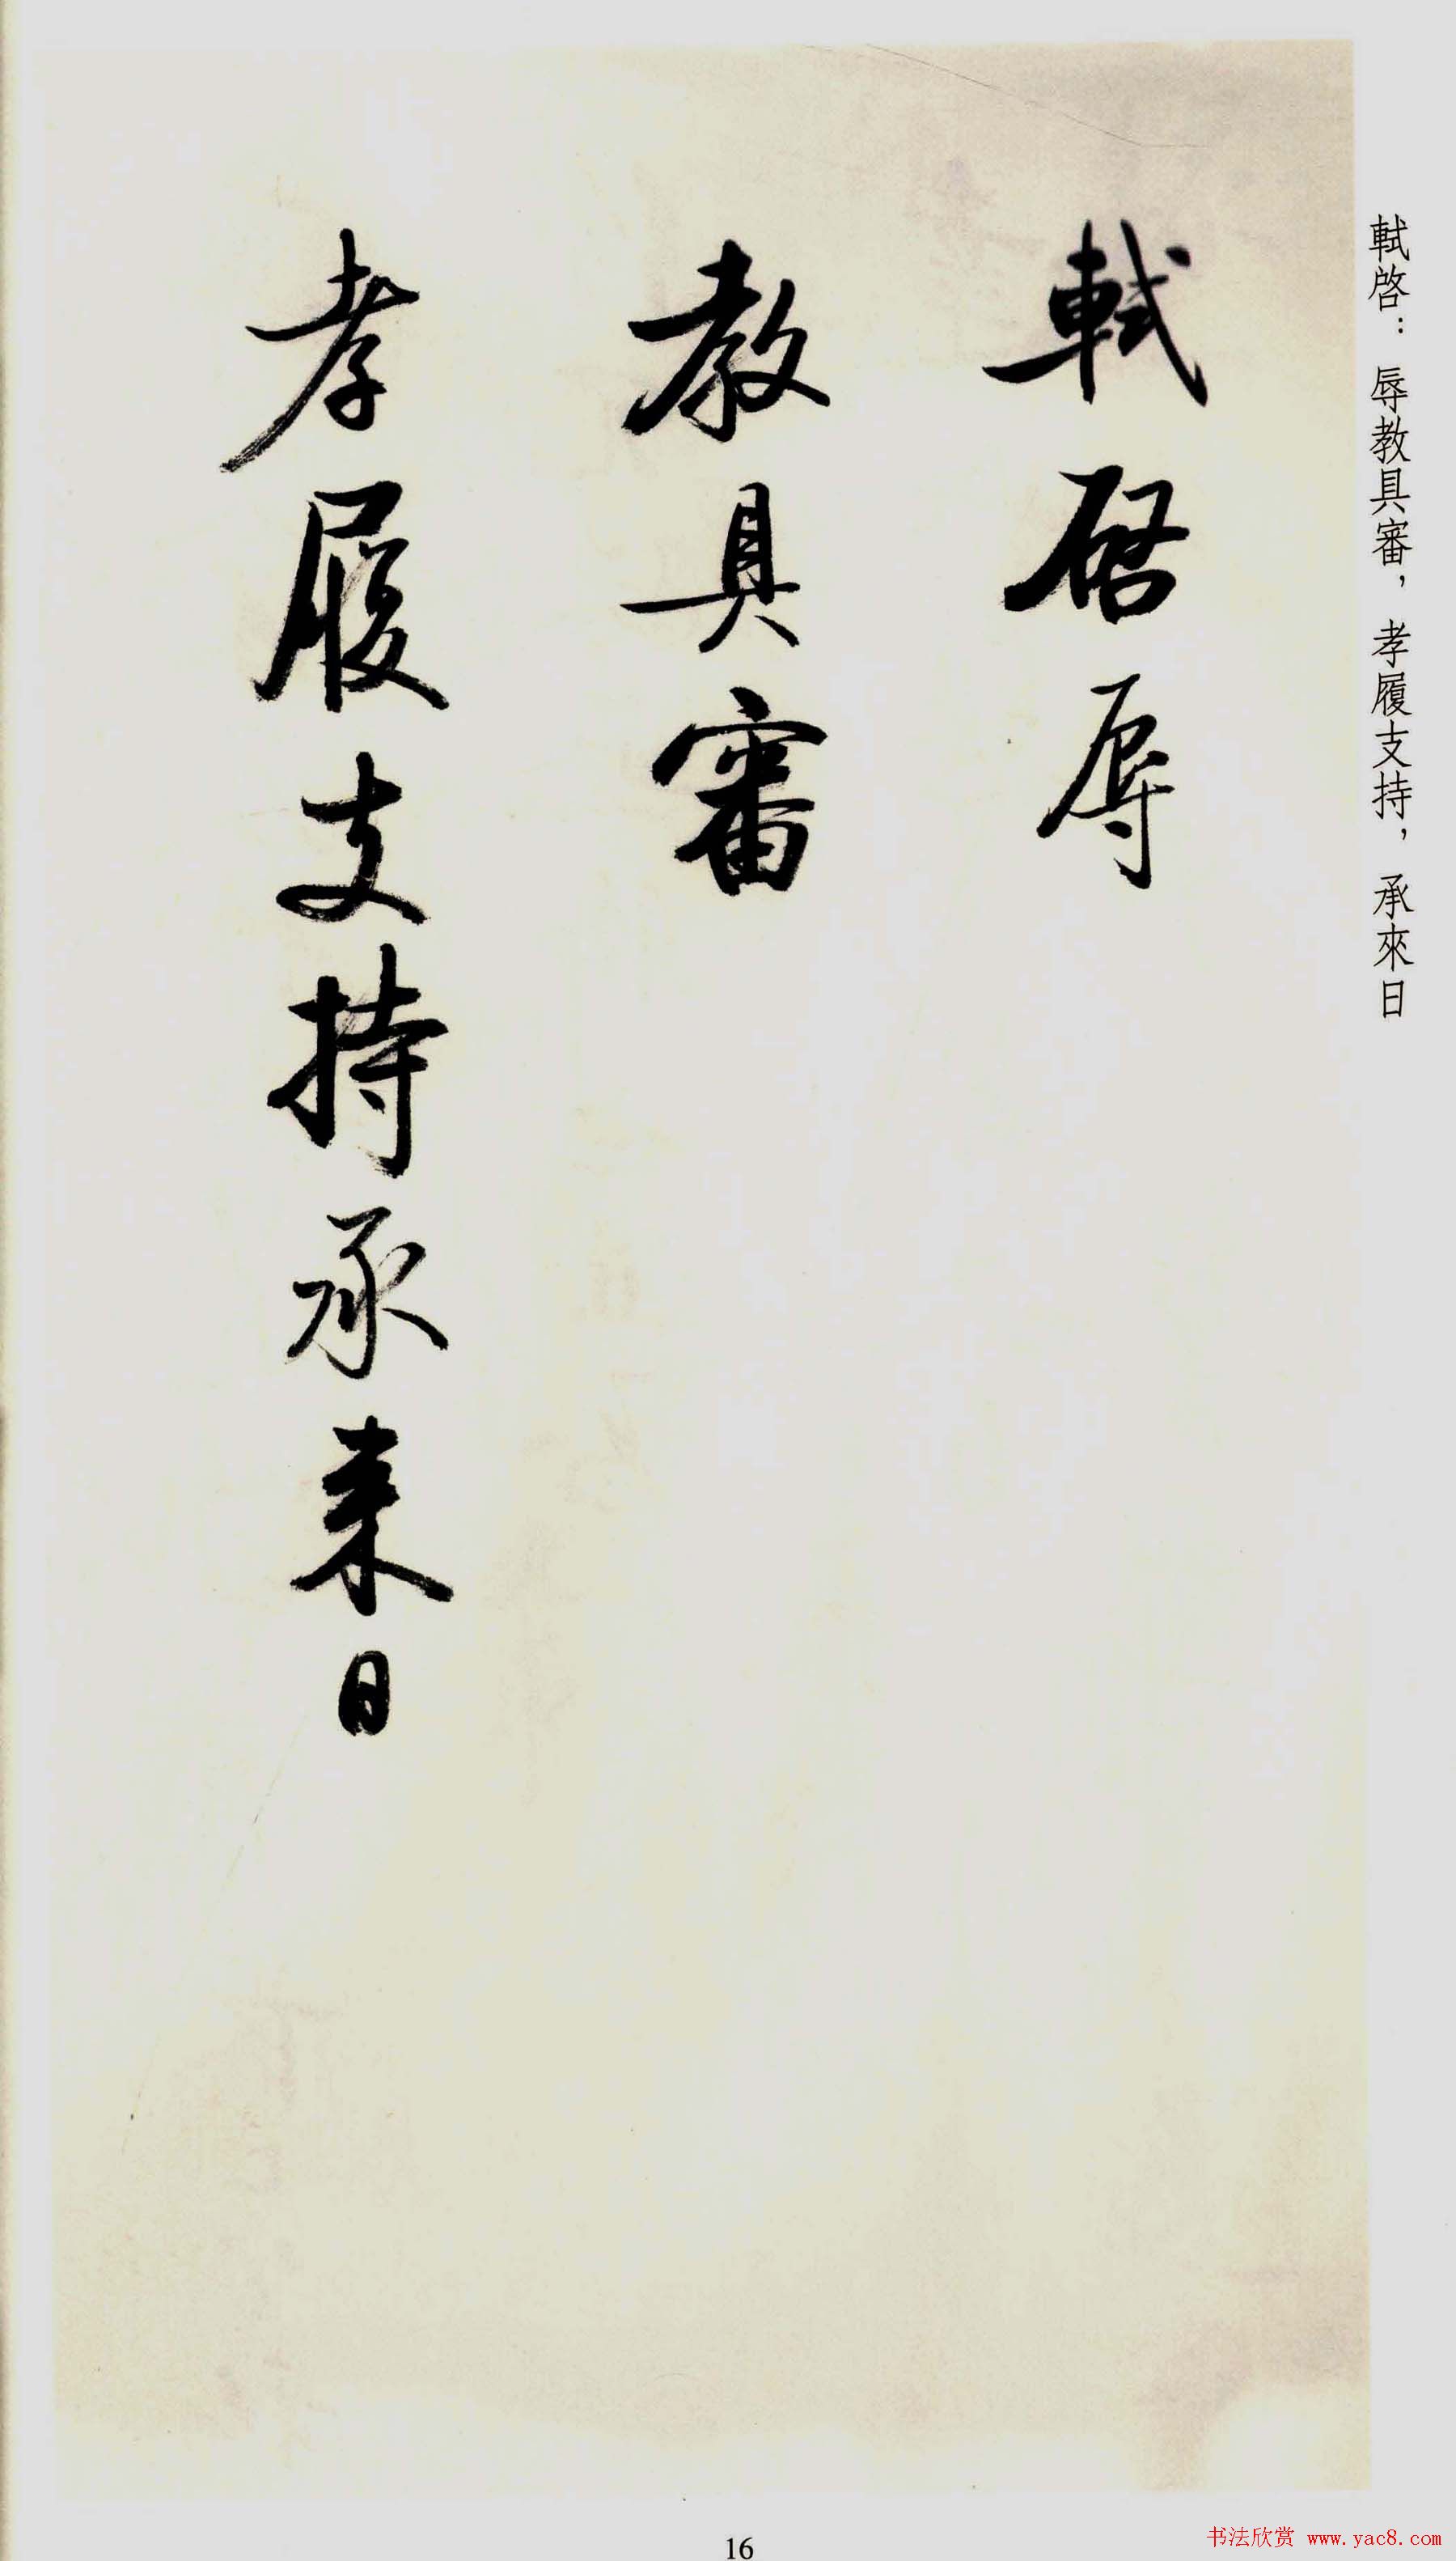 軾啓：辱教具審，孝履支持，承來日
軾啓辱
教具審
孝履支持承来日
16
书法欣赏 www.yac8.com